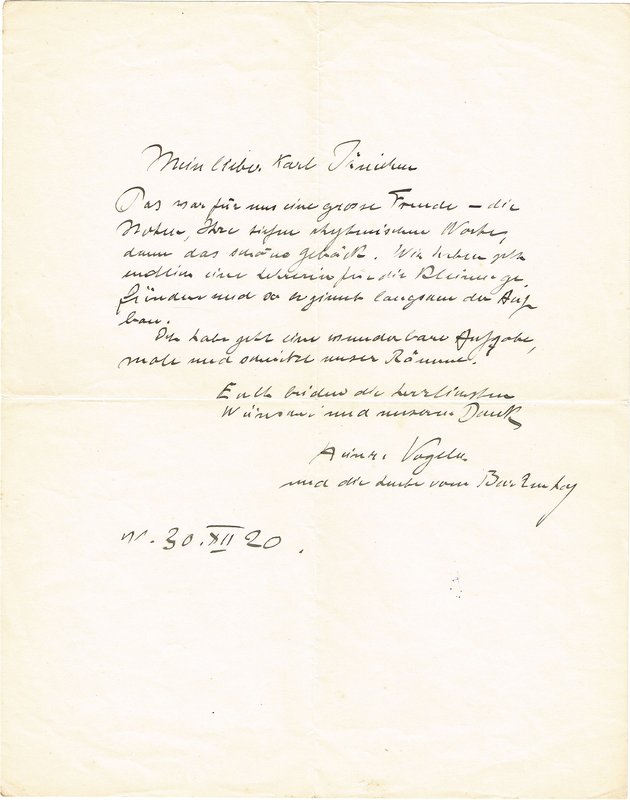 Mein lieber Karl
Das war für uns eine grosse Freude – die
Noten, Ihre tiefen rhytmischen Worte,
dann das schöne Gebäck. Wir haben jetzt
endlich eine Lehrerin für die Kleinen ge
funden und so beginnt langsam der Auf
bau.
Ich habe jetzt eine wunderbare Aufgabe,
male und schnitze unser Räume.
Euch beiden die herzlichsten
Wünsche und unseren Dank
Heinr. Vogeler
und die Leute vom Barkenhoff
W. 30. XII 20.